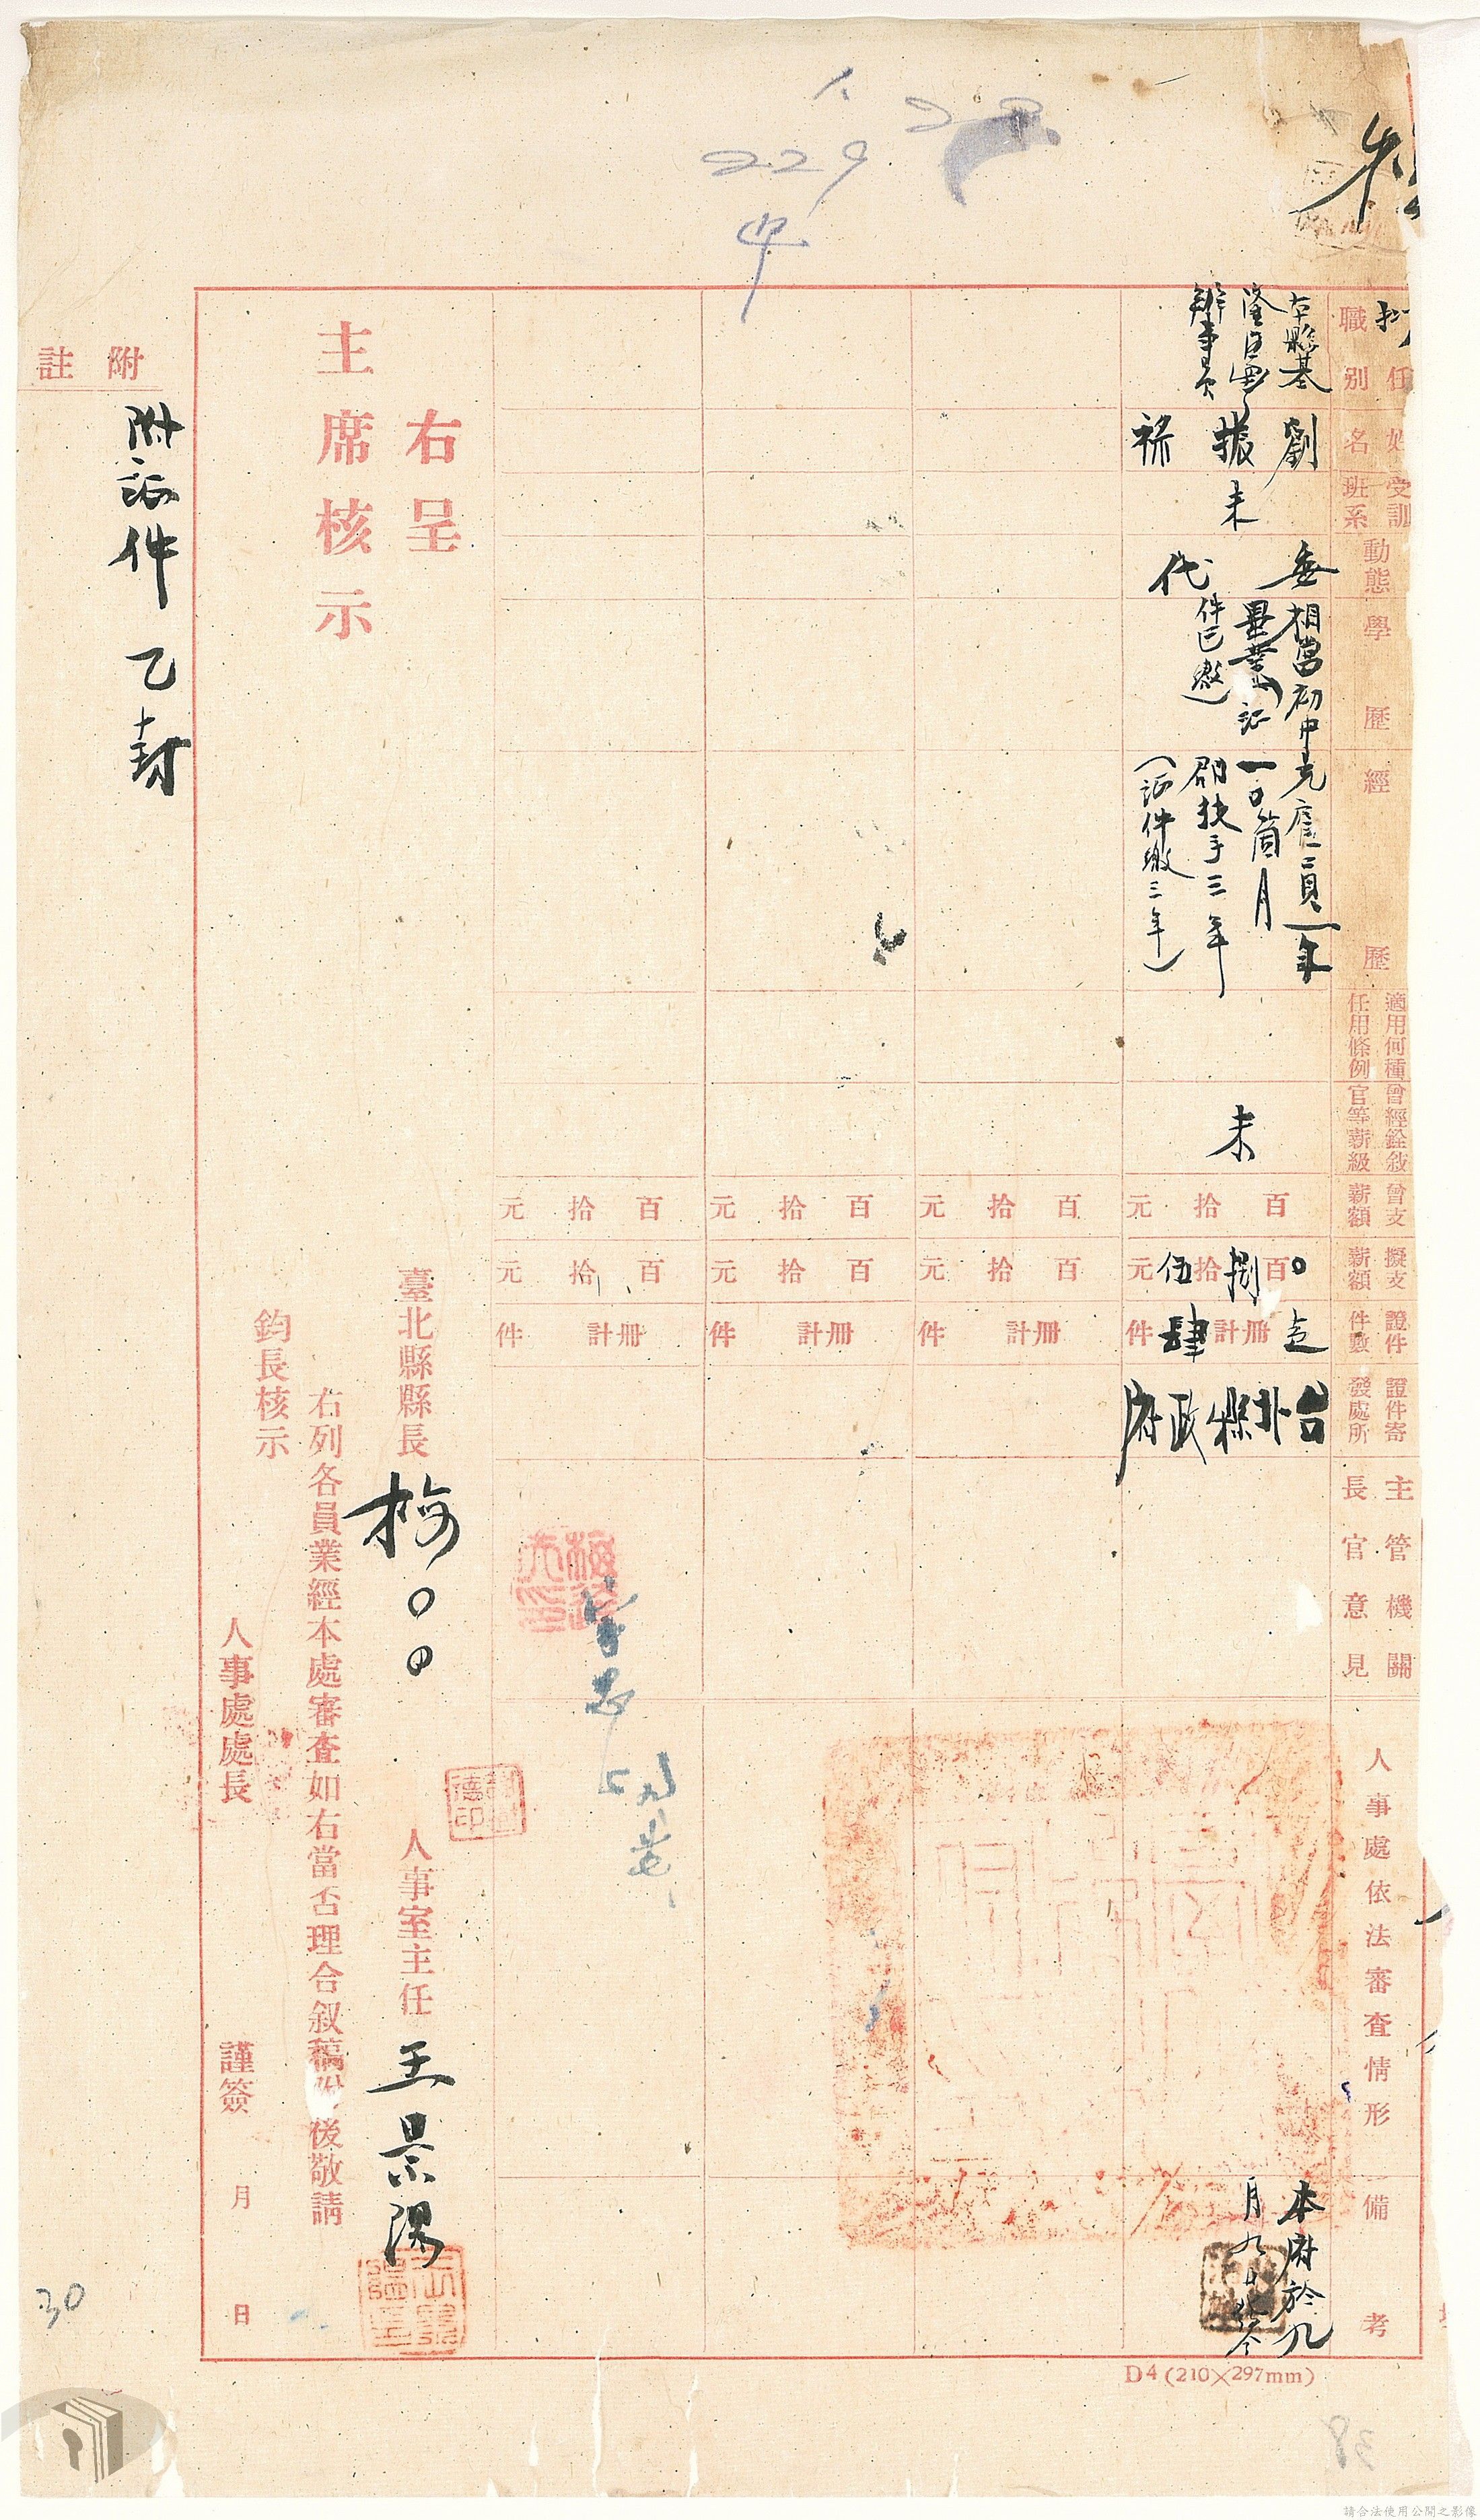 229
擬任
職別
姓名
受訓班系
動態
學歷
經歷
適用何種任用條例
曾經銓敘官等薪級
曾支薪額
擬支薪額
證件件數
證件寄發處所
主管機關長官意見
人事處依法審查情形
備考
本縣基
隆區署
辦事員
劉振
未
委
代
相當初中
畢業(証
件已繳)
充雇員一年
一〇箇月
郡技手三年
(証件繳三年)
未
百拾元
〇百捌拾伍元
壱冊計肆件
台北縣政府
本府於九
月九日
令
百拾元
百拾元
冊計件
百拾元
百拾元
冊計件
百拾元
百拾元
冊計件
右呈
主席核示
臺北縣縣長 梅〇〇
人事室主任 王景陽
右列各員業經本處審查如右當否理合叙稿附後敬請
鈞長核示
人事處處長 謹簽 月 日
附註
附証件乙封
30
38
D4(210×297mm)
請合法使用公開之影像